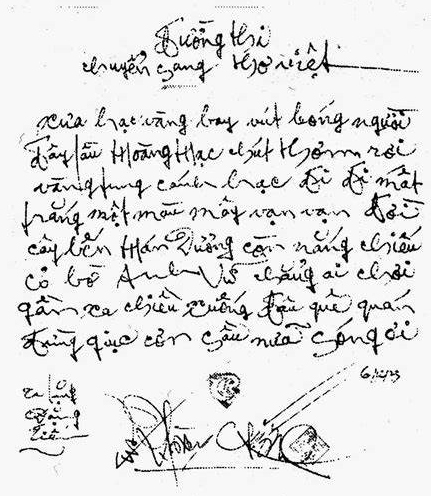 Đường thi
chuyển sang thơ Việt
xưa hạc vàng bay vút bóng người
đây lầu Hoàng Hạc chút thơm rơi
vàng tung cánh hạc đi đi mất
trắng một màu mây vạn vạn đời
cây bến Hán Dương còn nắng chiếu
cỏ bờ Anh Vũ chẳng ai chơi
gần xa chiều xuống đâu quê quán
đừng giục cơn sầu nữa sóng ơi